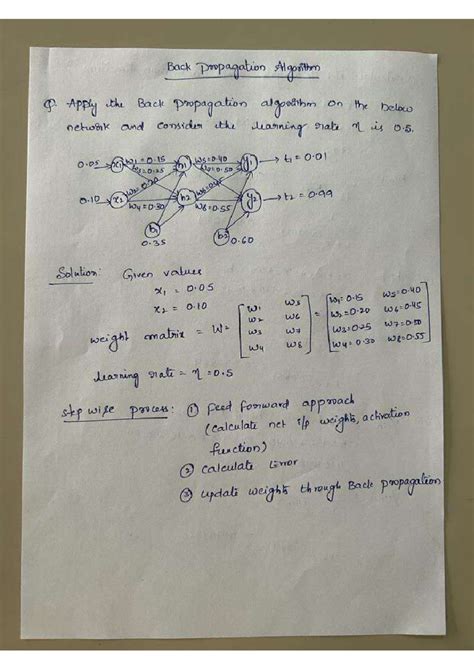 Back Propagation Algorithm
Q. Apply the Back Propagation algorithm on the below
network and consider the learning rate η is 0.5.
0.05 x1 w1=0.15 w3=0.25 h1 w5=0.40 w7=0.50 y1 t1=0.01
0.10 x2 w2=0.20 w4=0.30 h2 w8=0.55 y2 t2=0.99
b1 b2
0.35 0.60
Solution: Given values
x1 = 0.05
x2 = 0.10
weight matrix = W =
w1 w5 = w1=0.15 w5=0.40
w2 w6 w2=0.20 w6=0.45
w3 w7 w3=0.25 w7=0.50
w4 w8 w4=0.30 w8=0.55
learning rate = η = 0.5
step wise process: ① feed forward approach
(calculate net i/p weights, activation
function)
② calculate Error
③ update weights through Back propagation